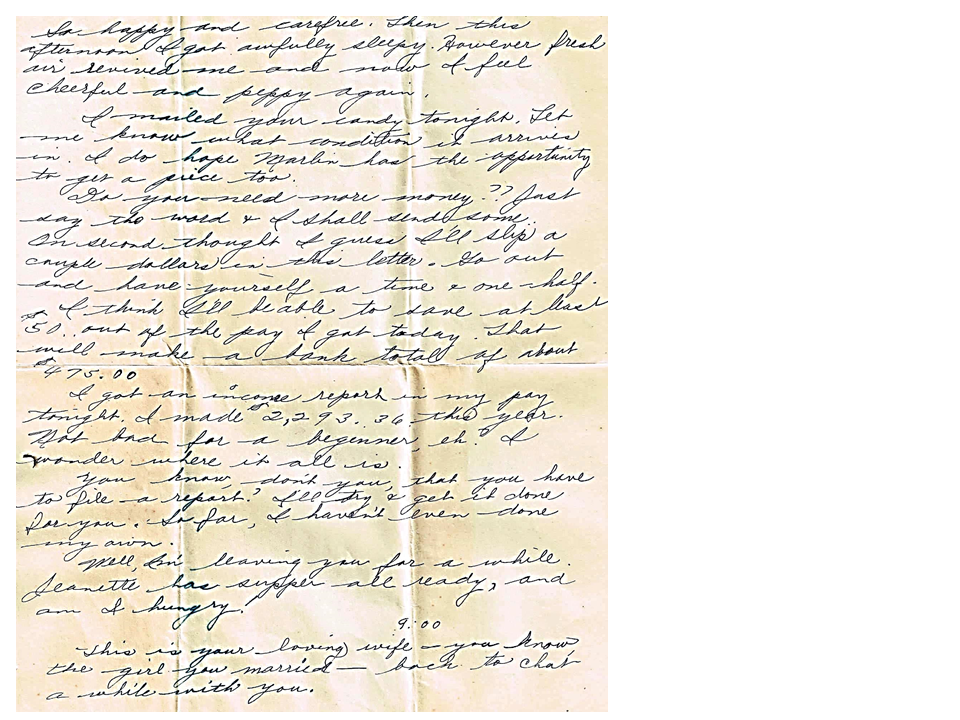 So happy and carefree. Then this
afternoon I got awfully sleepy. However fresh
air revived me and now I feel
cheerful and peppy again.
I mailed your candy tonight. Let
me know what condition it arrives
in. I do hope Marlin has the opportunity
to get a price too.
Do you need more money?? Just
say the word & I shall send some.
On second thought I guess I'll slip a
couple dollars in this letter. Go out
and have yourself a time & one-half.
I think I'll be able to save at least
$50.. out of the pay I got today. That
will make a bank total of about
$475.00
I got an income report in my pay
tonight. I made $2,293.36 this year.
Not bad for a beginner, eh? I
wonder where it all is.
You know, don't you, that you have
to file a report? I'll try & get it done
for you. So far, I haven't even done
my own.
Well, I'm leaving you for a while.
Jeanette has supper all ready, and
am I hungry!
9:00
This is your loving wife - you know
the girl you married — back to chat
a while with you.